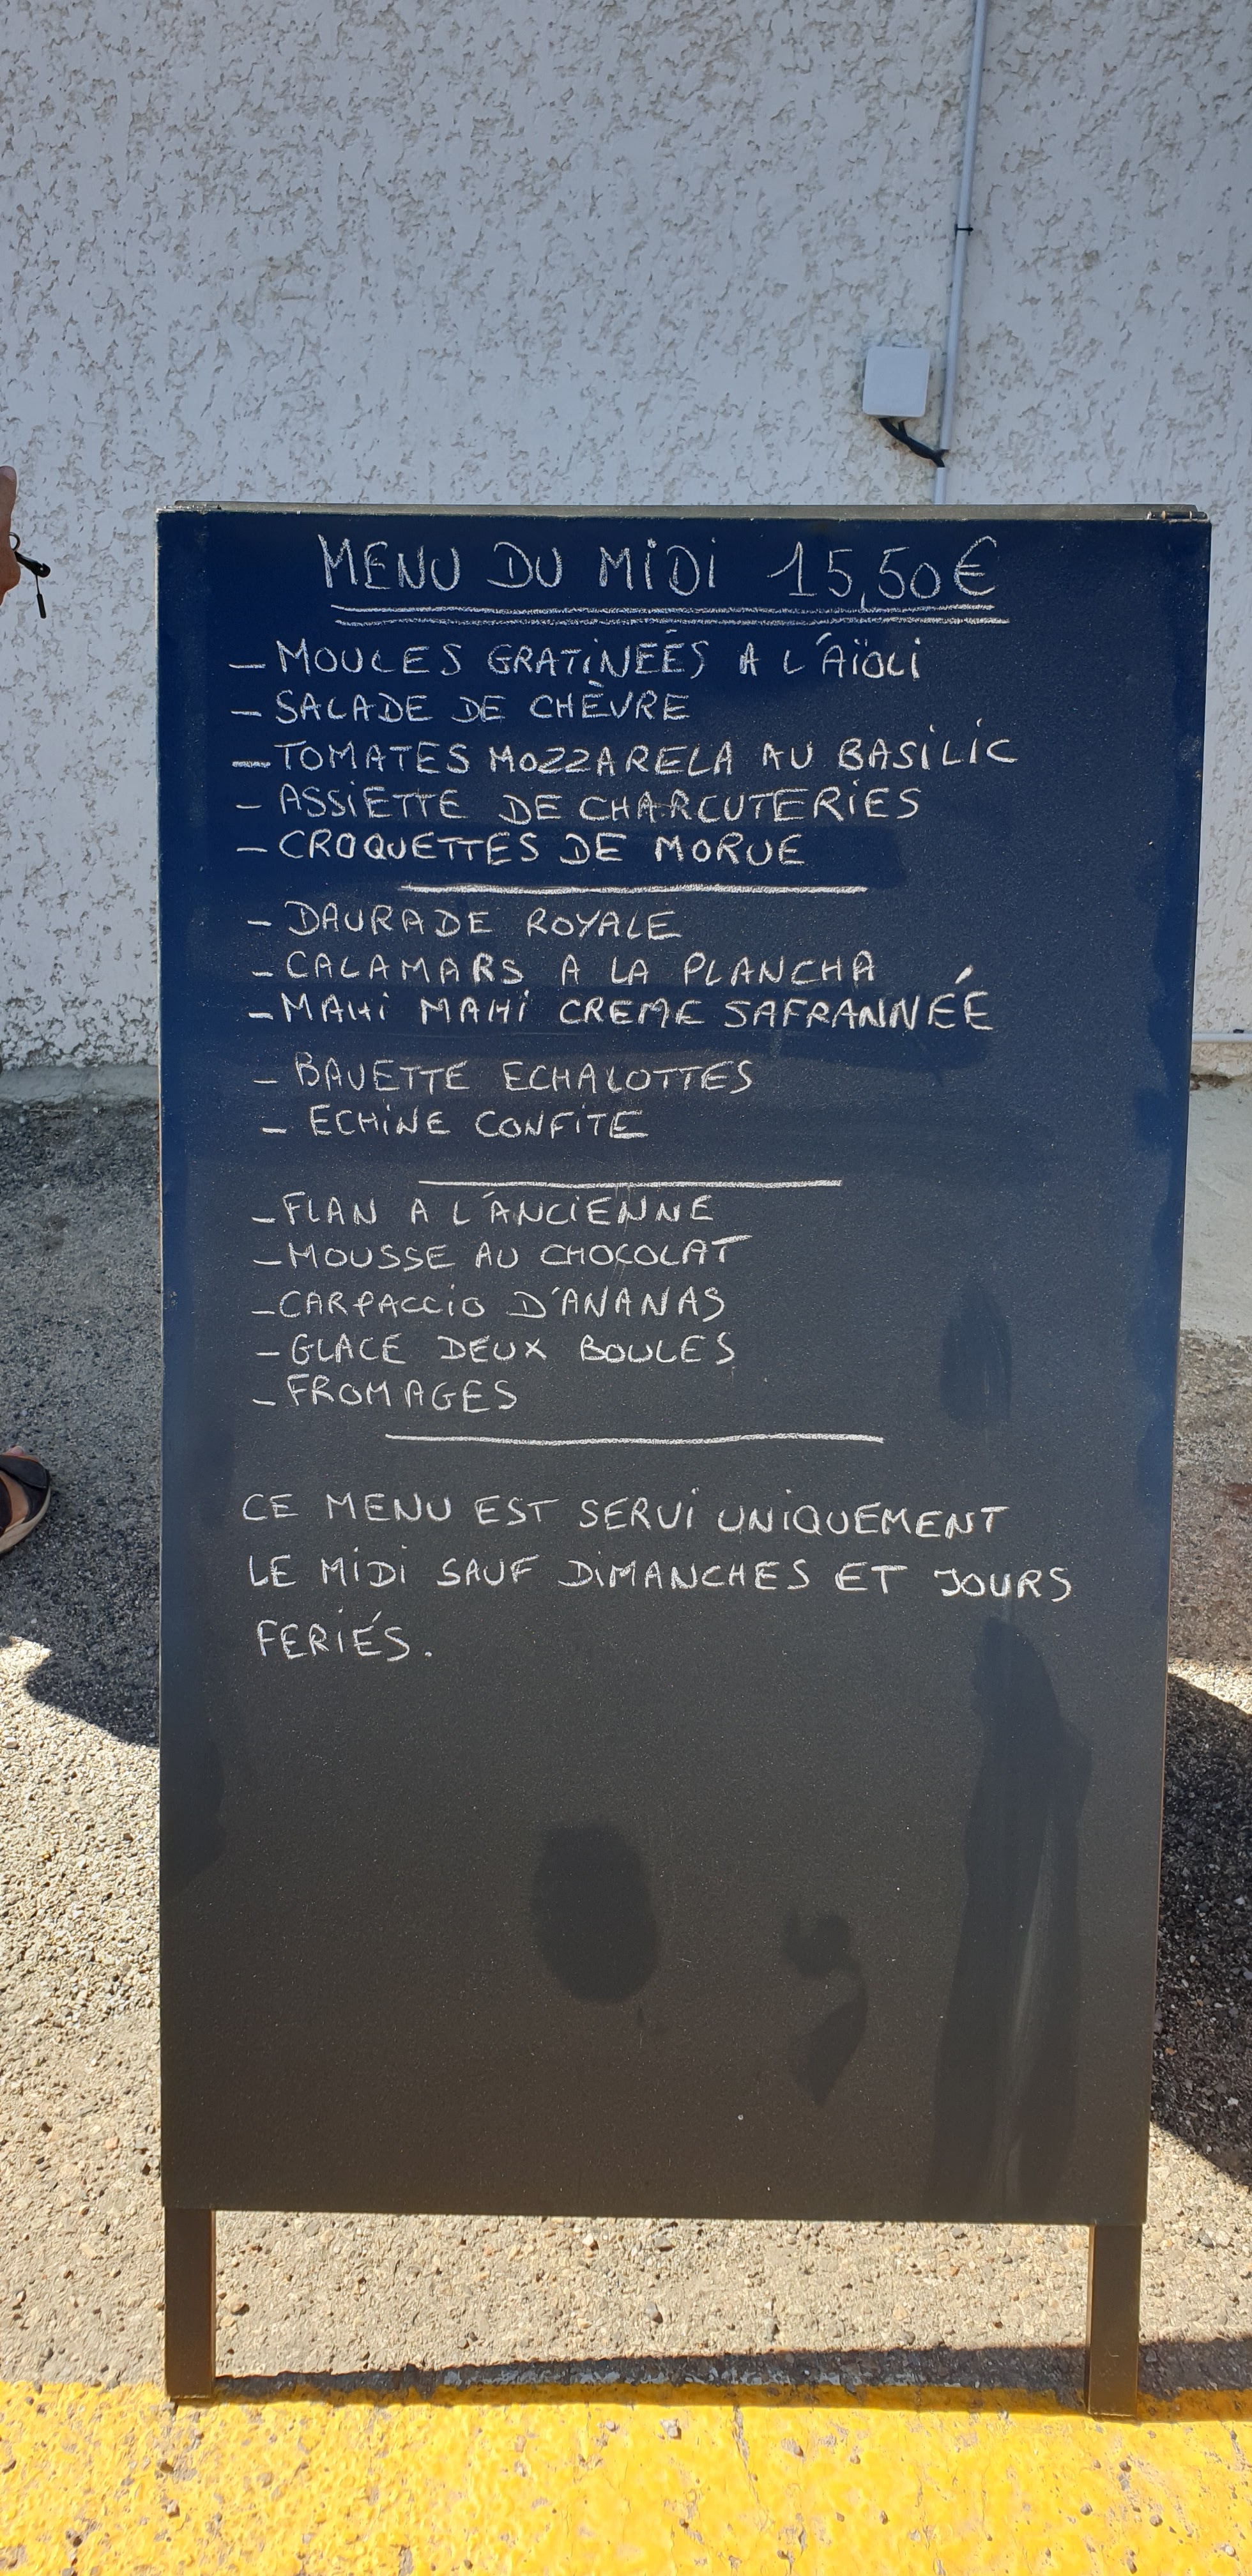 MENU DU MiDi 15,50€
- MOULES GRATiNEÉS A L'AÏOLi
- SALADE DE CHÈVRE
- TOMATES MOZZARELA AU BASiLiC
- ASSiETTE DE CHARCUTERiES
- CROQUETTES DE MORUE
- DAURADE ROYALE
- CALAMARS A LA PLANCHA
- MAHi MAHi CREME SAFRANNÉE
- BAVETTE ECHALOTTES
- ECHiNE CONFiTE
- FLAN A L'ANCiENNE
- MOUSSE AU CHOCOLAT
- CARPACCiO D'ANANAS
- GLACE DEUX BOULES
- FROMAGES
CE MENU EST SERVi UNiQUEMENT
LE MiDi SAUF DiMANCHES ET JOURS
FERiÉS.